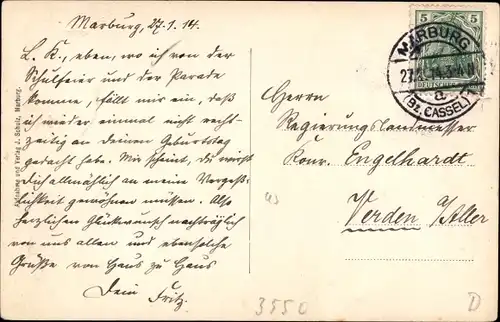 Marburg, 27.1.14.
L. K., eben, wo ich von der
Schulfeier und der Parade
komme, fällt mir ein, daß
ich wieder einmal nicht recht-
zeitig an deinen Geburtstag
gedacht habe. Mir scheint, du wirst
dich allmählich an meine Vergeß-
lichkeit gewöhnen müssen. Also
herzlichen Glückwunsch nachträglich
von uns allen und ebensolche
Grüße von Haus zu Haus
Dein Fritz.
Verlag J. Scholz, Marburg.
5 5
MARBURG
a.
(BZ. CASSEL)
Herrn
Regierungslandmesser
Konr. Engelhardt
Verden a/Aller
3550
D